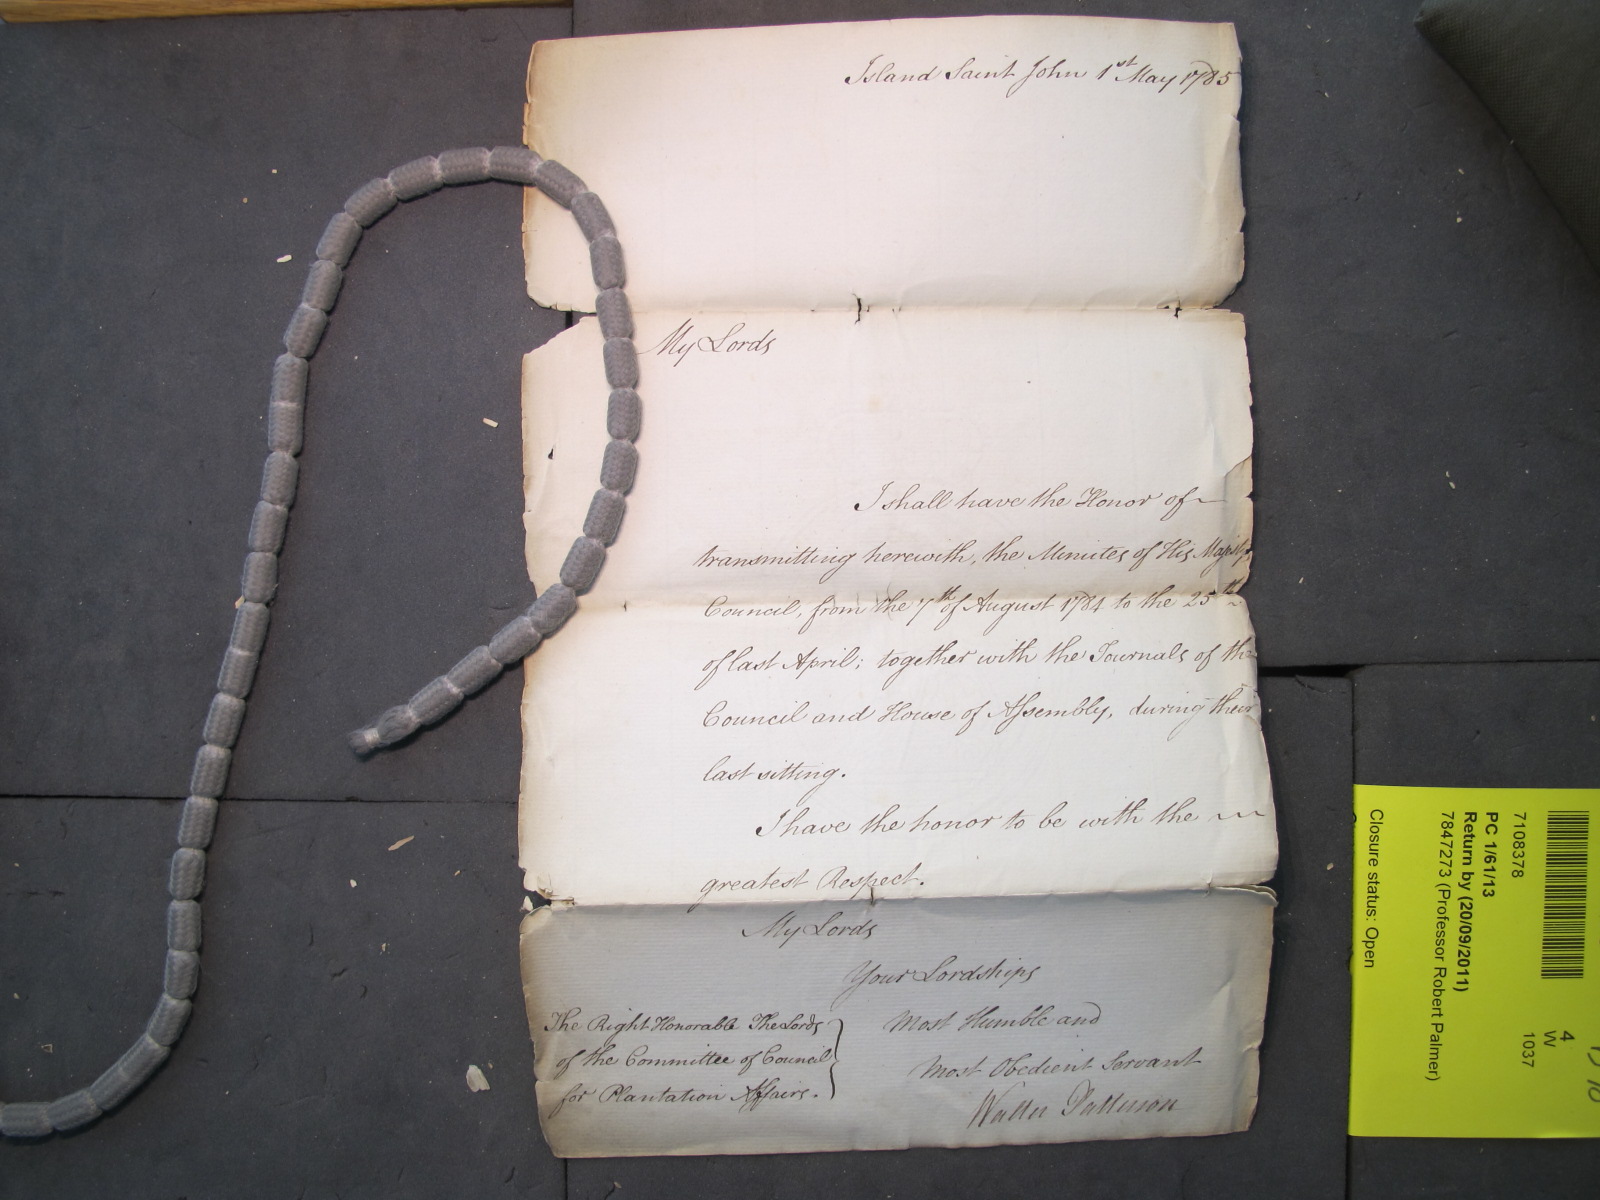 Island Saint John 1st May 1785
My Lords
I shall have the Honor of
transmitting herewith, the Minutes of His Majesty
Council, from the 7th of August 1784 to the 25th
of last April; together with the Journals of the
Council and House of Assembly, during their
last sitting.
I have the honor to be with the
greatest Respect.
My Lords
Your Lordships
Most Humble and
Most Obedient Servant
Walter Patterson
The Right Honorable The Lords
of the Committee of Council
for Plantation Affairs.
7108378
4
W
1037
PC 1/61/13
Return by (20/09/2011)
7847273 (Professor Robert Palmer)
Closure status: Open